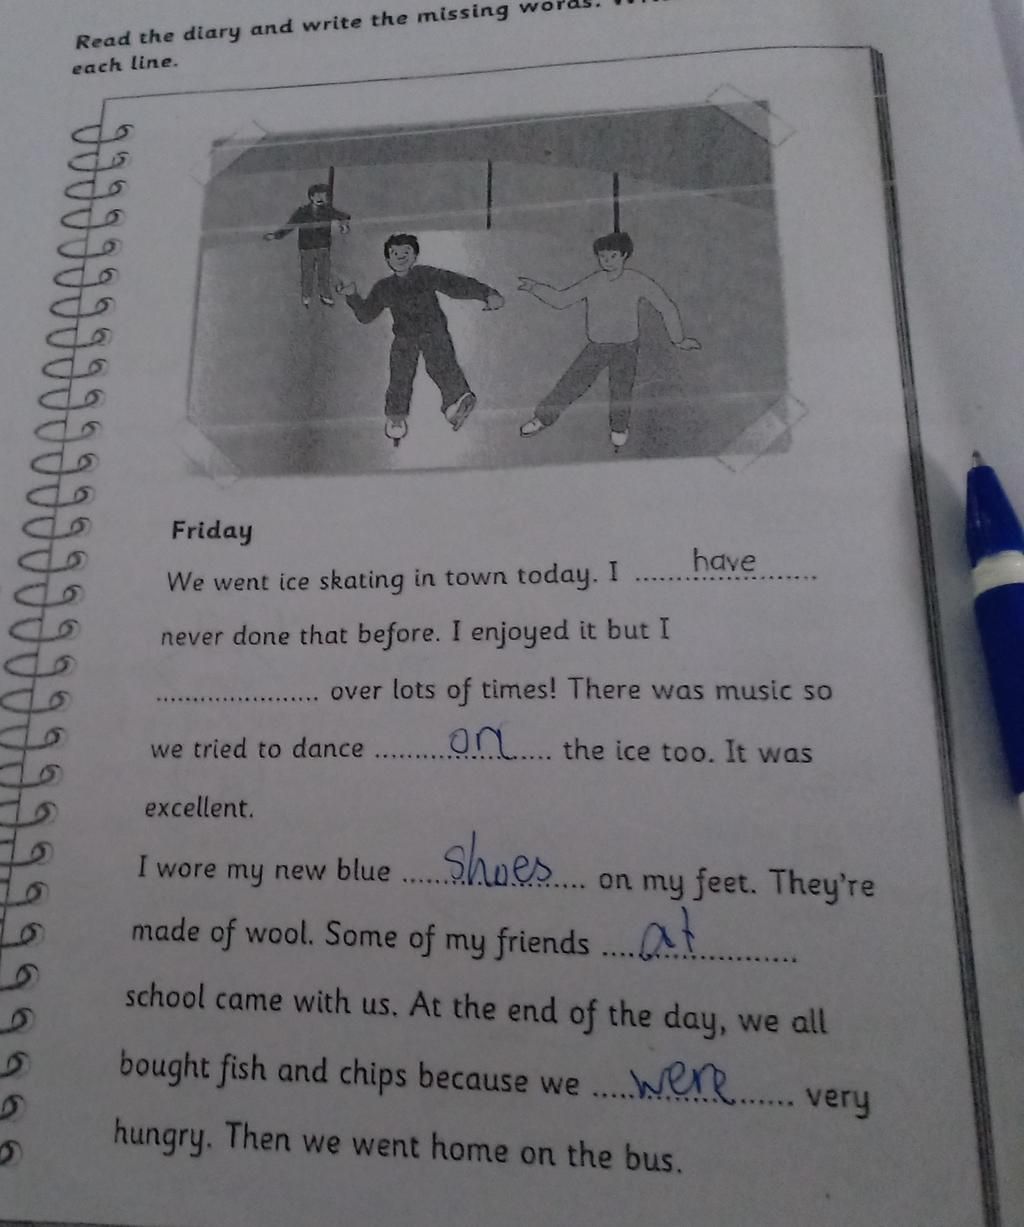 Read the diary and write the missing words.
each line.
Friday
We went ice skating in town today. I ......have......
never done that before. I enjoyed it but I
...................... over lots of times! There was music so
we tried to dance .........on...... the ice too. It was
excellent.
I wore my new blue ......shoes...... on my feet. They're
made of wool. Some of my friends ....at..............
school came with us. At the end of the day, we all
bought fish and chips because we .....were....... very
hungry. Then we went home on the bus.